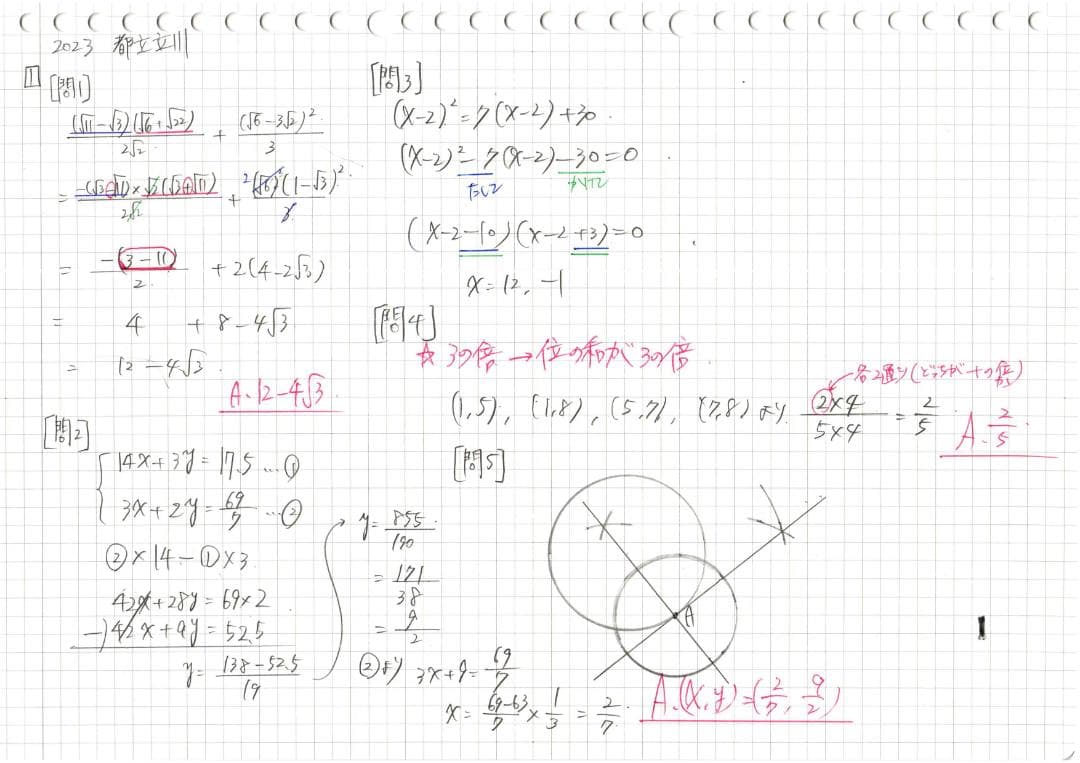 2023 都立立川
1
[問1]
(√11-√3)(√6+√22)/2√2 + (√6-3√2)²/3
= -(√3-√11)×√2(√3+√11)/2√2 + (√6)²(1-√3)²/3
= -(3-11)/2 + 2(4-2√3)
= 4 + 8-4√3
= 12-4√3
A. 12-4√3
[問2]
14x+3y=17.5 …①
3x+2y=69/7 …②
②×14-①×3
42x+28y=69×2
-)42x+9y=52.5
y=(138-52.5)/19
y=855/190
=171/38
=9/2
②より 3x+9=69/7
x=(69-63)/7×1/3=2/7
A.(x,y)=(2/7, 9/2)
[問3]
(x-2)²=7(x-2)+30
(x-2)²-7(x-2)-30=0
たして かけて
(x-2-10)(x-2+3)=0
x=12, -1
[問4]
☆ 3の倍→位の和が3の倍
各2通り(どっちが十の位か)
(1,5), (1,8), (5,7), (7,8) より (2×4)/(5×4) = 2/5
A. 2/5
[問5]
A
1